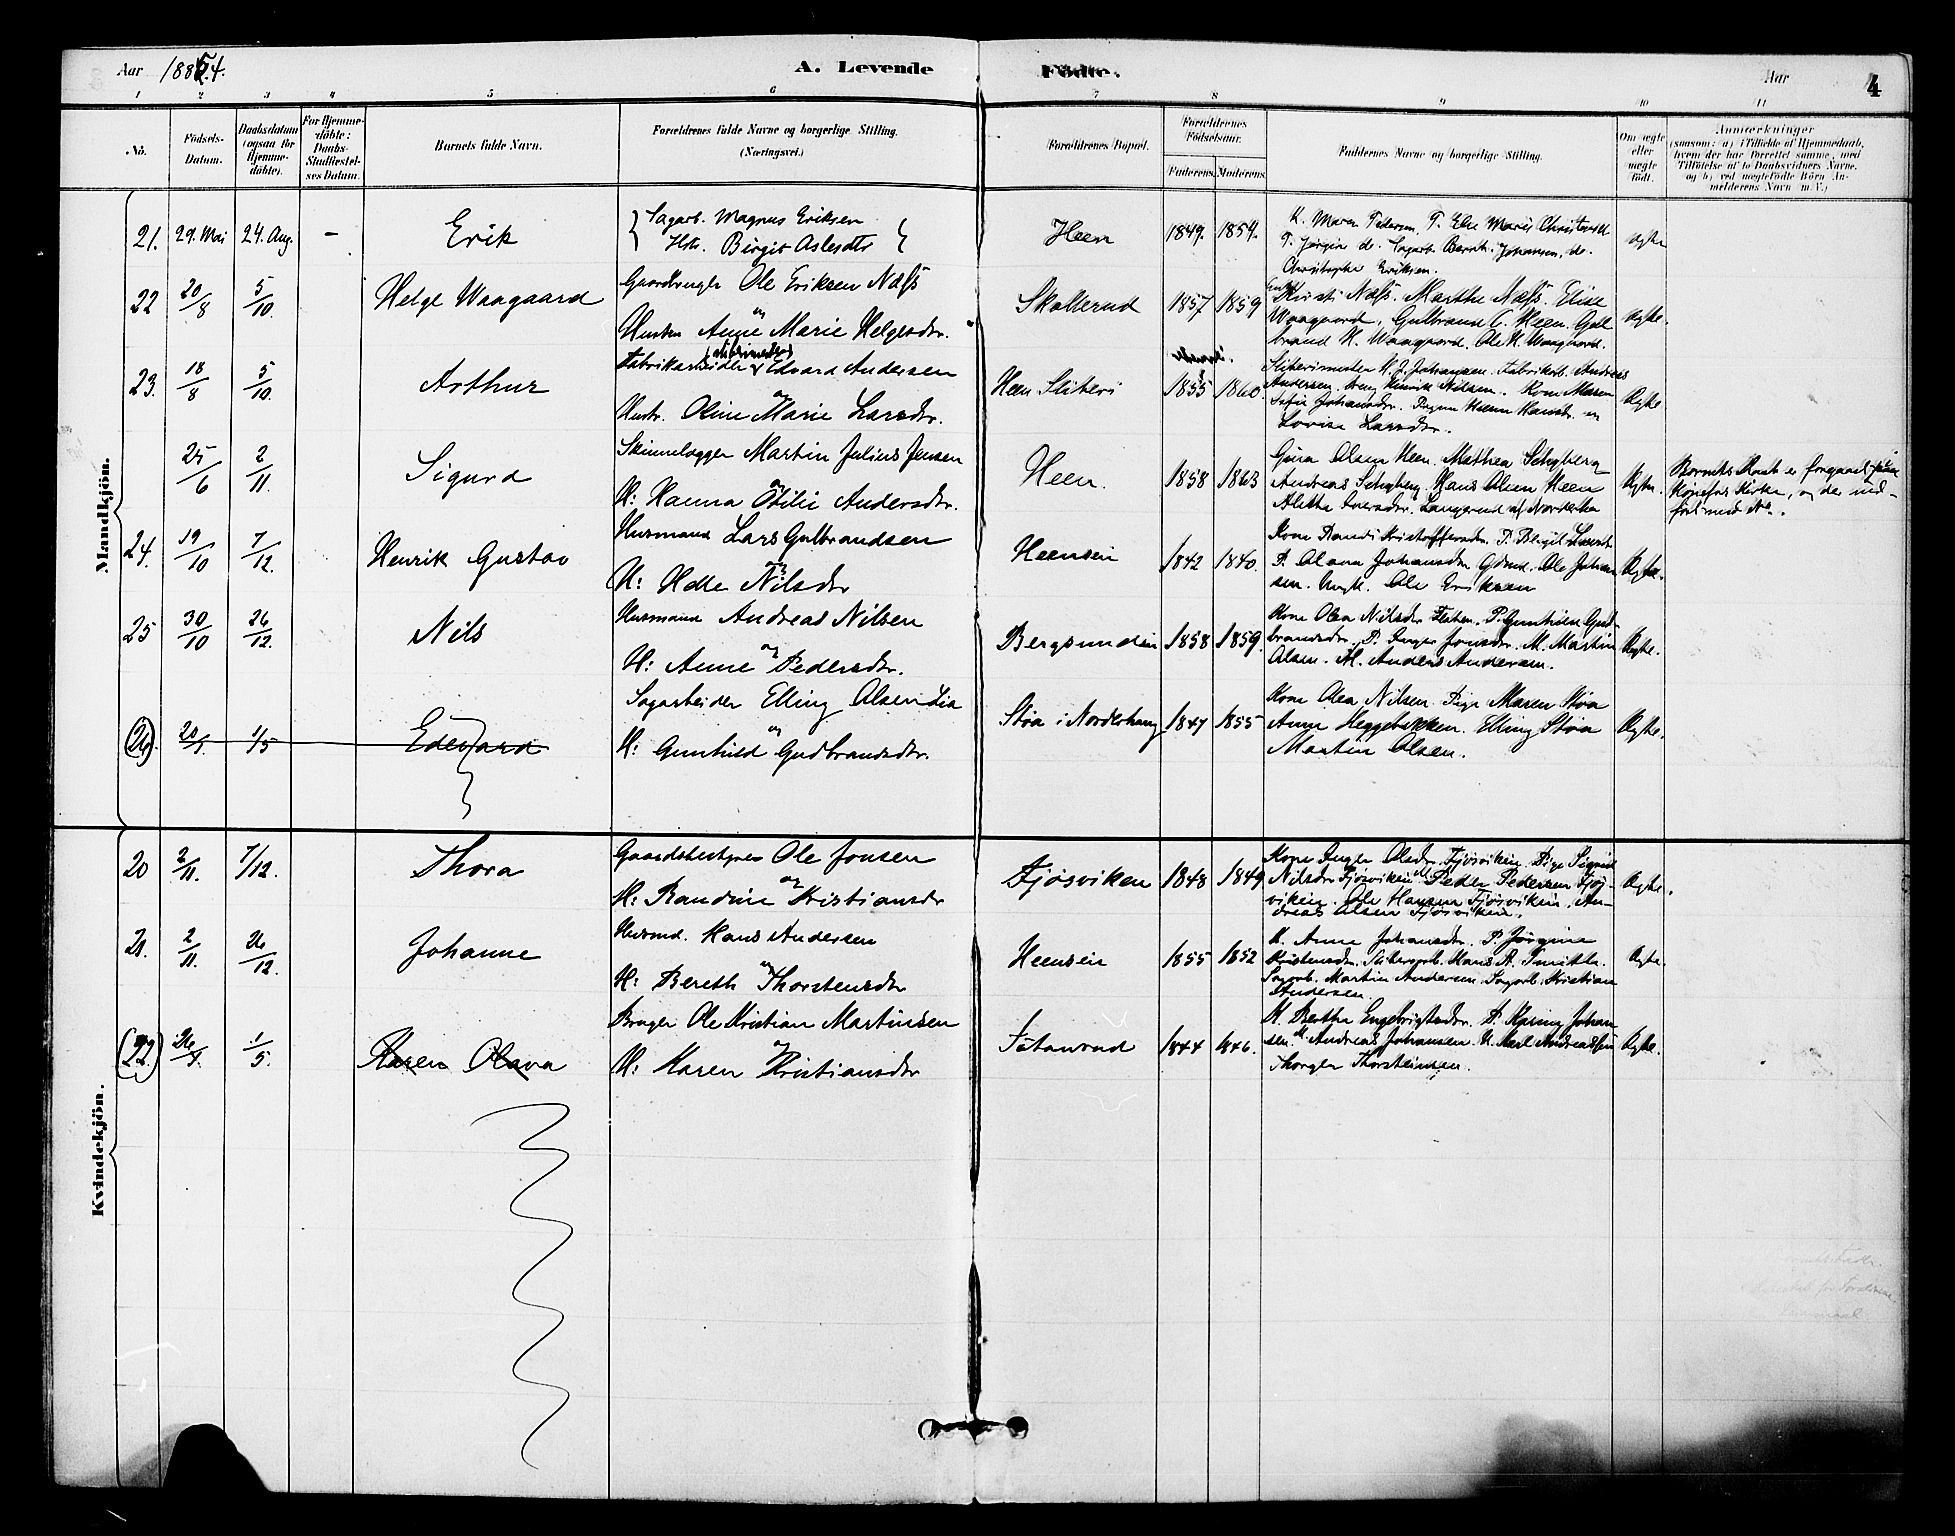 Aar 1884.
A. Levende Födte.
Aar
4
1 2 3 4 5 6 7 8 9 10 11
No.
Födsels-Datum.
Daabsdatum (ogsaa for Hjemme-döbte).
For Hjemme-döbte: Daabs-Stadfæstelses Datum.
Barnets fulde Navn.
Forældrenes fulde Navne og borgerlige Stilling. (Næringsvei.)
Forældrenes Bopæl.
Forældrenes Födselsaar.
Faderens. Moderens.
Faddernes Navne og borgerlige Stilling.
Om ægte eller uægte født.
Anmærkninger
(saasom: a) i Tilfælde af Hjemmedaab, hvem der har forrettet samme, med Tilföielse af to Daabsvidners Navne, og b) ved uægtefödte Börn Anmelderens Navn m. V.)
Mandkjön.
21. 29. Mai 24. Aug. - Erik
Sagarb. Magnus Eriksen
Hstr. Birgit Aslesdtr
Heen 1849. 1859.
K. Maren Pedersen, P. Else Marie
P. Jørgine do. Sagarb. Bernh. Johansen, do.
Christophe Eriksen.
ægte
22 20/8 5/10. Helge Waagaard
Gaardbruger Ole Eriksen Næss
og
Hustru Anne Marie Helgesdr.
Skollerud 1857 1859
Kristi Næss. Marthe Næss. Elise
Waagaard, Gulbrand C. Heen. Gulbrand H. Waagaard. Ole H. Waagaard.
Ægte.
23. 18/8 5/10. Arthur
Fabrikarbeider Edvard Andersen
og
Hustr. Oline Marie Larsdr.
Heen Sliberi 1855 1860.
Slibérimester H. J. Johansen. Fabrikarb. Andreas
Andersen. Ung. Henrik Nilsen. Kone Maren
Sofie Johansdr. Pigen
Lovise Larsdr.
Ægte
25/6 2/11. Sigurd
Skinnelægger Martin Julius Jensen
og
H: Hanna Otilie Andersdr.
Heen. 1858 1863
Gina Olsen Heen. Mathea Schyberg
Andreas Schyberg. Hans Olsen Heen
Alethe Iversdr. Langerud af Norderhov
Ægte.
Barnets Daab er foregaaet i
Hønefos Kirke, og der indført med No.
24. 19/10 7/12. Henrik Gustav
Husmand Lars Gulbrandsen
og
H: Helle Nilsdr
Heenseie 1842 1840.
Kone Randi Kristoffersdr. P. Birgit Larsdr
P. Olava Johansdr. Gdmd. Ole Johansen. Ungk. Ole Eriksen
Ægte.
25 30/10 26/12. Nils
Husmand Andreas Nilsen
og
H: Anne Pedersdr.
Bergsundeie 1858 1859.
Kone Olea Nilsdr Flaten. P. Gunhild Gudbrandsdr. P. Inger Jonsdr. M. Martin
Olsen. M. Anders Andersen.
Ægte.
26. 20/1. 1/5 Edevard
Sagarbeider Elling Olsen Lia
og
H: Gunhild Gudbrandsdr.
Støa i Norderhaug 1847 1855
Kone Olea Nilsen. Pige Maren Støa
Anne Heggebakken. Elling Støa
Martin Olsen.
Ægte.
Kvindekjön.
20 2/11. 7/12. Thora
Gaardsbestyrer Ole Jonsen
og
H: Randine Kristiansdr
Fjøsviken 1848 1849
Kone Inger Olsdr. Fjøsviken. Pige Sigrid
Nilsdr Fjøsviken. Peder Pedersen Fjøsviken. Ole Hansen Fjøsviken. Andreas Olsen Fjøsviken.
Ægte.
21. 2/11. 26/12. Johanne
Husmd. Hans Andersen
og
H: Bereth Thorstensdr
Heenseie 1855 1852
K. Anne Johansdr. P. Jørgine
Kristensdr. Sliberarb. Hans A. Smette.
Sagarb. Martin Andersen. Sagarb. Kristian
Andersen.
Ægte.
(22) 26/1. 1/5. Karen Olava
Bruger Ole Kristian Martinsen
og
H: Karen Kristiansdr
Fåtanrud 1844 1846.
K. Berthe Engebrigtsdr. P. Karine Johansen. Andreas Johansen. U. Karl Andreassen
Thorger Thorsteinsen.
Ægte.